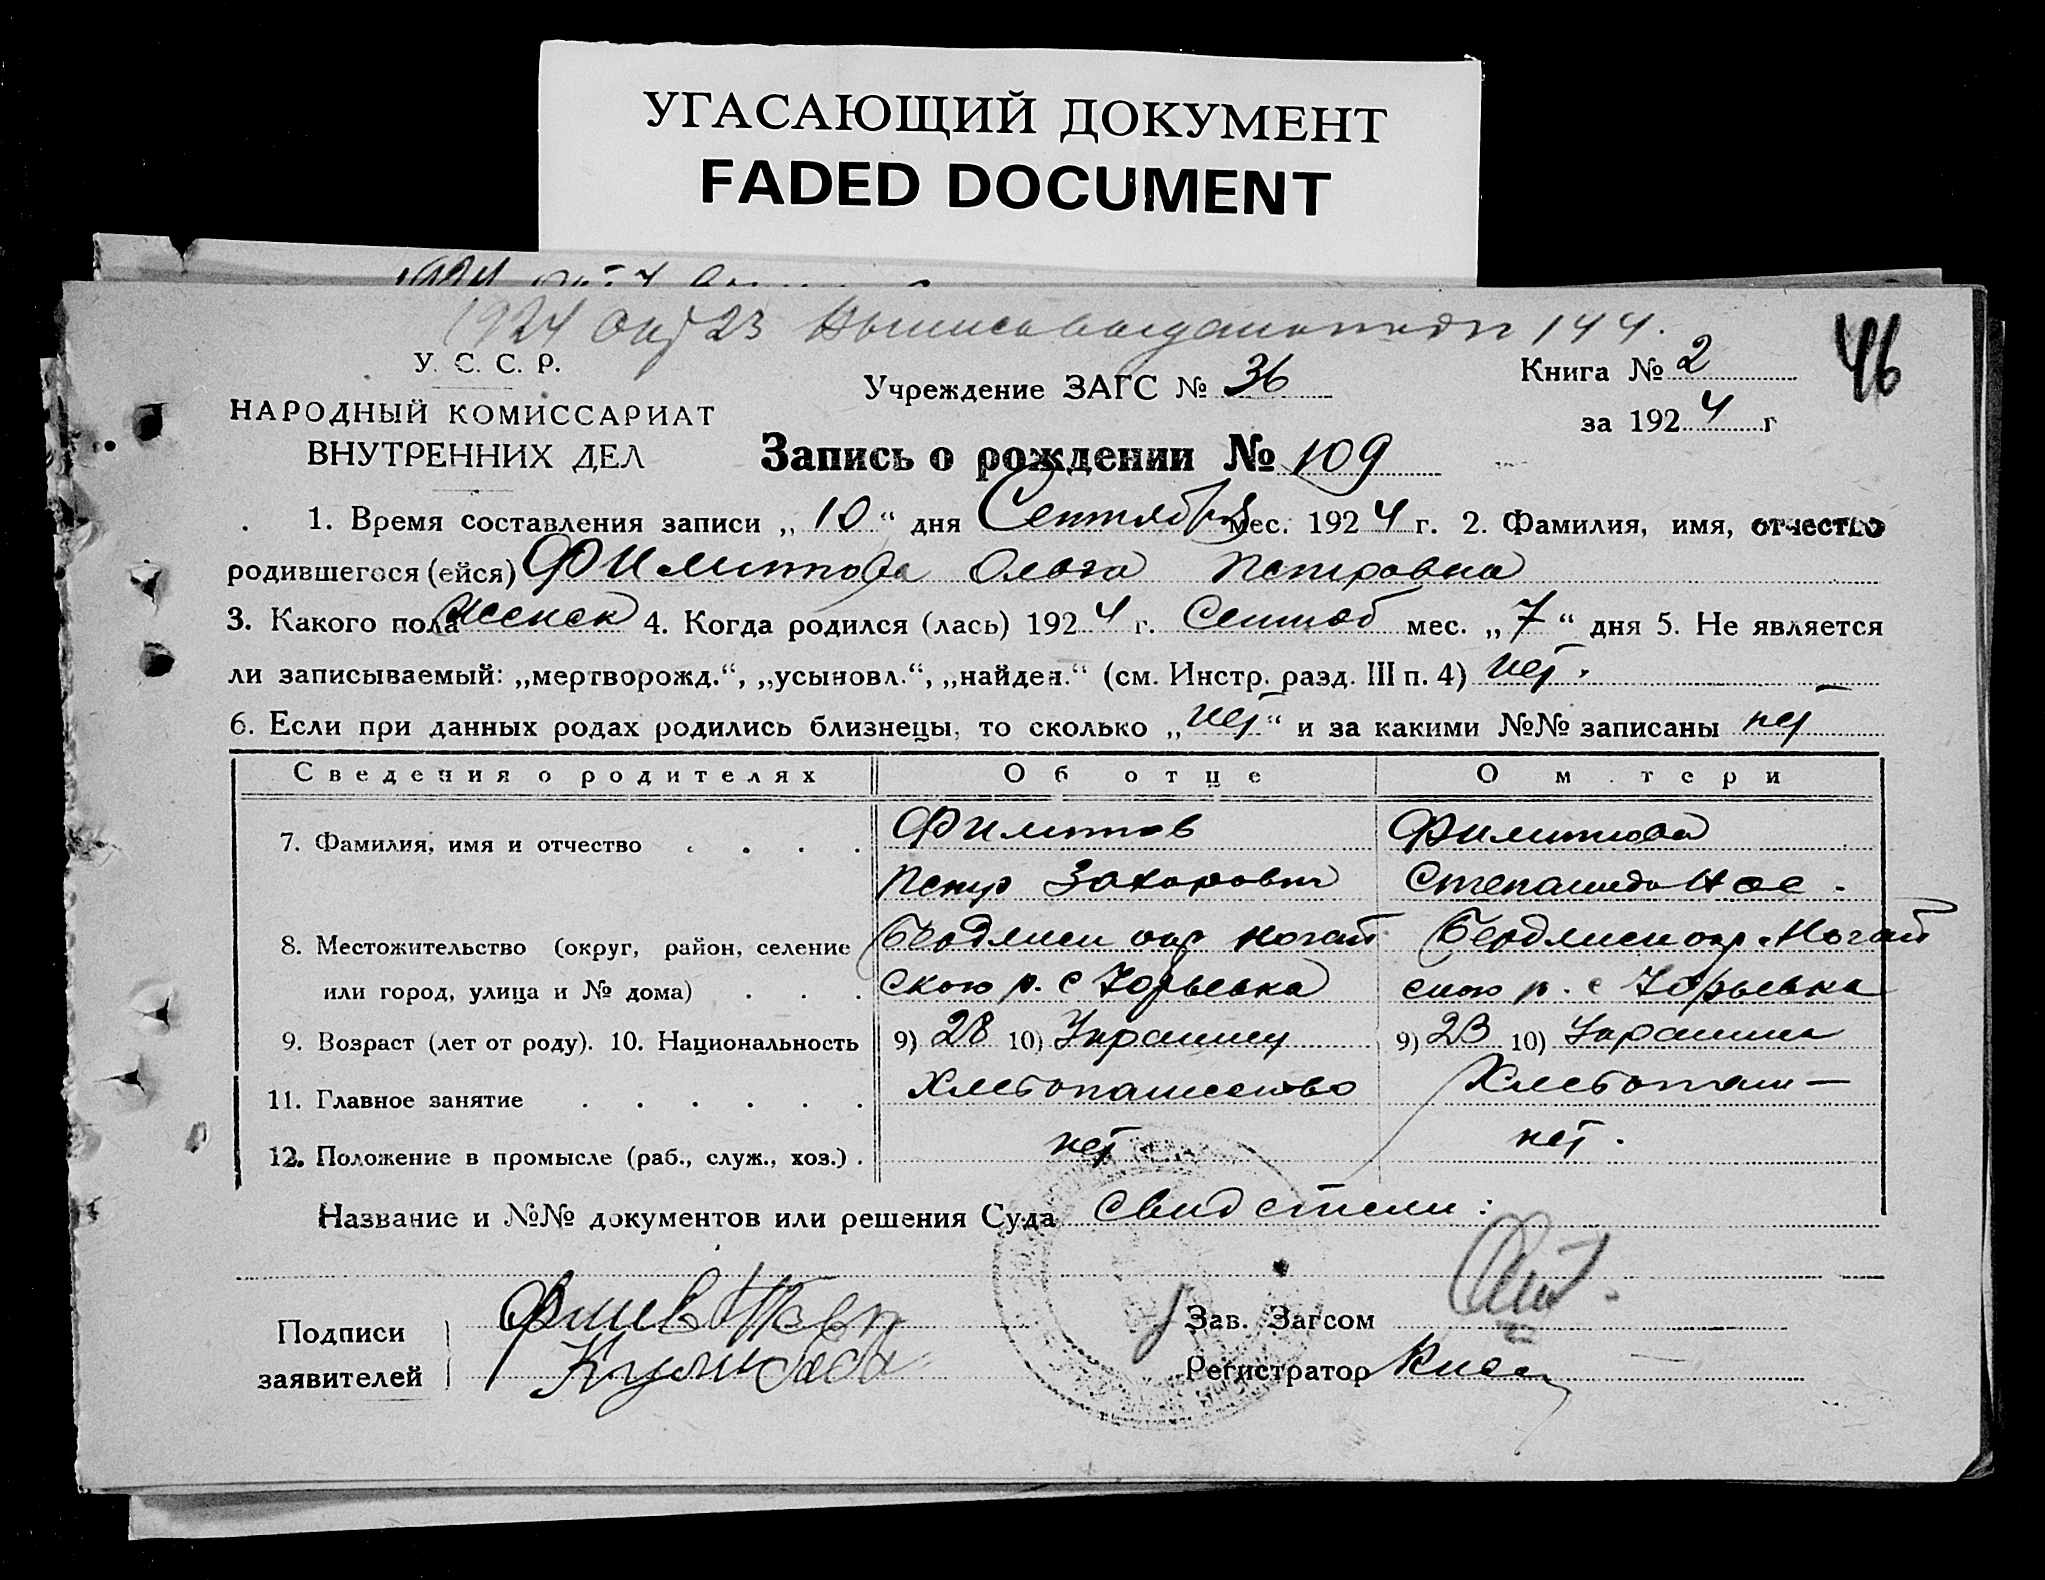 УГАСАЮЩИЙ ДОКУМЕНТ
FADED DOCUMENT
1924 Окт 23 144.
У. С. С. Р.
НАРОДНЫЙ КОМИССАРИАТ
ВНУТРЕННИХ ДЕЛ
Учреждение ЗАГС № 36
Книга № 2
за 1924 г
46
Запись о рождении № 109
1. Время составления записи „ 10 “ дня Сентября мес. 1924 г. 2. Фамилия, имя, отчество
родившегося (ейся) Филиппова Ольга Петровна
3. Какого пола женск 4. Когда родился (лась) 1924 г. Сентяб мес. „ 7 “ дня 5. Не является
ли записываемый: „мертворожд.“, „усыновл.“, „найден.“ (см. Инстр. разд. III п. 4) нет.
6. Если при данных родах родились близнецы, то сколько „ нет “ и за какими №№ записаны нет
Сведения о родителях Об отце О м тери
7. Фамилия, имя и отчество Филиппов Филиппова
Петр Захарович Степанида
8. Местожительство (округ, район, селение Бердянск окр Ногай Бердянск окр. Ногай
или город, улица и № дома) ского р. с Юрьевка ского р. с Юрьевка
9. Возраст (лет от роду). 10. Национальность 9) 28 10) Украинец 9) 23 10) Украинк
11. Главное занятие Хлебопашество Хлебопаш—
12. Положение в промысле (раб., служ., хоз.) . нет нет.
Название и №№ документов или решения Суда свидетели:
Подписи
заявителей
Зав. Загсом
Регистратор